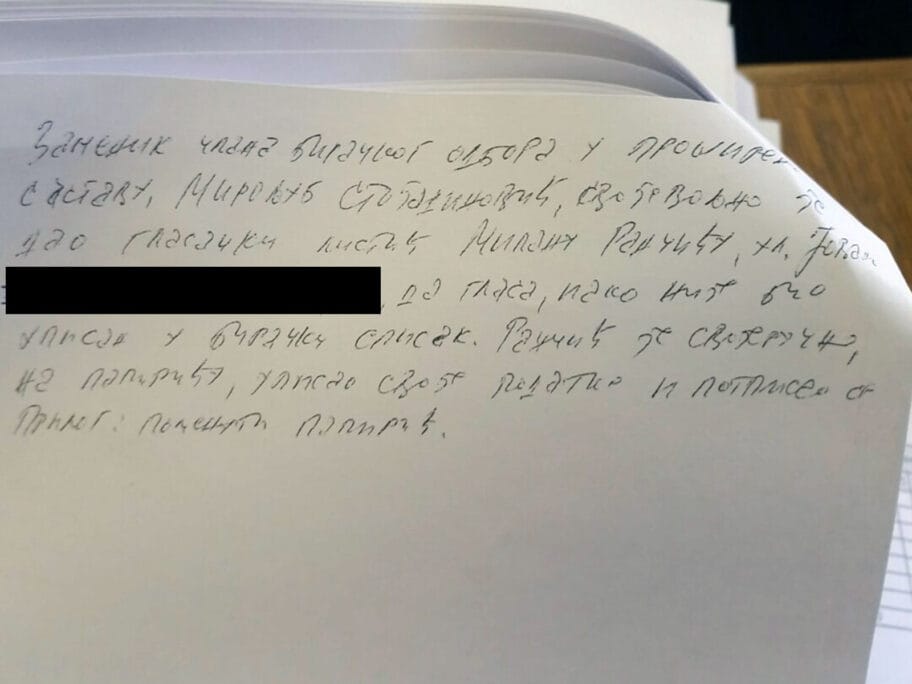 Заменик члана бирачког одбора у проширен
саставу, Мирољуб Стојадиновић, својевољно је
дао гласачки листић Милану Ранчићу, ул. Јован
, да гласа, иако није био
уписан у бирачки списак. Ранчић је својеручно,
на папирићу, уписао своје податке и потписао се
Прилог: поменути папирић.